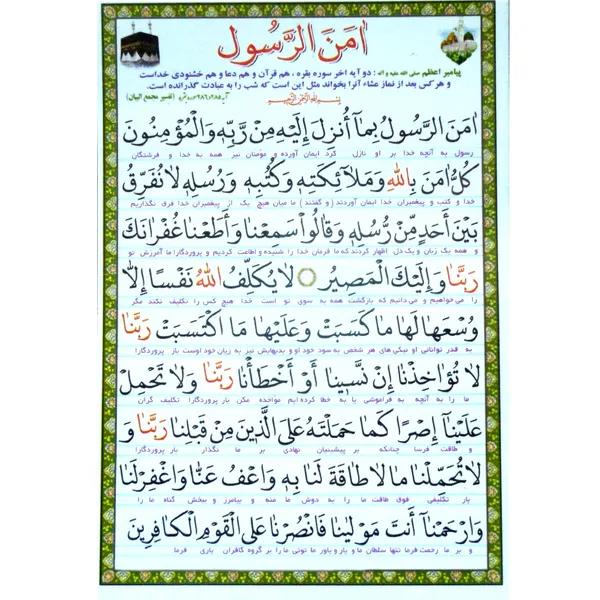 اٰمَنَ الرَّسُول
پیامبر اعظم صلی الله علیه و آله : دو آیه آخر سوره بقره ، هم قرآن و هم دعا و هم خشنودی خداست
و هر کس بعد از نماز عشاء آنرا بخواند مثل این است که شب را به عبادت گذرانده است. (تفسیر مجمع البیان)
بِسْمِ اللهِ الرَّحْمٰنِ الرَّحِیمِ
اٰمَنَ الرَّسُولُ بِمٰا أُنْزِلَ إِلَیْهِ مِنْ رَبِّهِ وَالْمُؤْمِنُونَ
رسول به آنچه خدا بر او نازل کرد ایمان آورده و مومنان نیز همه به خدا و فرشتگان
کُلٌّ اٰمَنَ بِاللهِ وَمَلاٰئِکَتِهِ وَکُتُبِهِ وَرُسُلِهِ لاٰ نُفَرِّقُ
خدا و کتب و پیغمبران خدا ایمان آوردند ( و گفتند ) ما میان هیچ یک از پیغمبران خدا فرق نگذاریم
بَیْنَ أَحَدٍ مِّنْ رُسُلِهِ وَقٰالُوا سَمِعْنٰا وَأَطَعْنٰا غُفْرٰانَکَ
و همه یک زبان و یک دل اظهار کردند که ما فرمان خدا را شنیده و اطاعت کردیم و پروردگارا ما آمرزش تو
رَبَّنٰا وَإِلَیْکَ الْمَصِیرُ لاٰ یُکَلِّفُ اللهُ نَفْسًا إِلاّٰ
را می خواهیم و می دانیم که بازگشت همه به سوی تو است خدا هیچ کس را تکلیف نکند مگر
وُسْعَهٰا لَهٰا مٰا کَسَبَتْ وَعَلَیْهٰا مَا اکْتَسَبَتْ رَبَّنٰا
به قدر توانائی او نیکی های هر شخص به سود خود او و بدیهایش نیز به زیان خود اوست بار پروردگارا
لاٰ تُؤٰاخِذْنٰا إِنْ نَّسِینٰا أَوْ أَخْطَأْنٰا رَبَّنٰا وَلاٰ تَحْمِلْ
ما را به آنچه به فراموشی یا به خطا کرده ایم مواخذه مکن بار پروردگارا تکلیف گران
عَلَیْنٰا إِصْرًا کَمٰا حَمَلْتَهُ عَلَی الَّذِینَ مِنْ قَبْلِنٰا رَبَّنٰا وَ
و طاقت فرسا چنانکه بر پیشینیان نهادی بر ما نگذار بار پروردگارا
لاٰ تُحَمِّلْنٰا مٰا لاٰ طٰاقَةَ لَنٰا بِهِ وَاعْفُ عَنّٰا وَاغْفِرْ لَنٰا
بار تکلیفی فوق طاقت ما را به دوش ما منه و بیامرز و ببخش گناه ما را
وَارْحَمْنٰا أَنْتَ مَوْلٰینٰا فَانْصُرْنٰا عَلَی الْقَوْمِ الْکٰافِرِینَ
و بر ما رحمت فرما تنها سلطان ما و یار و یاور ما توئی ما را بر گروه کافران یاری فرما